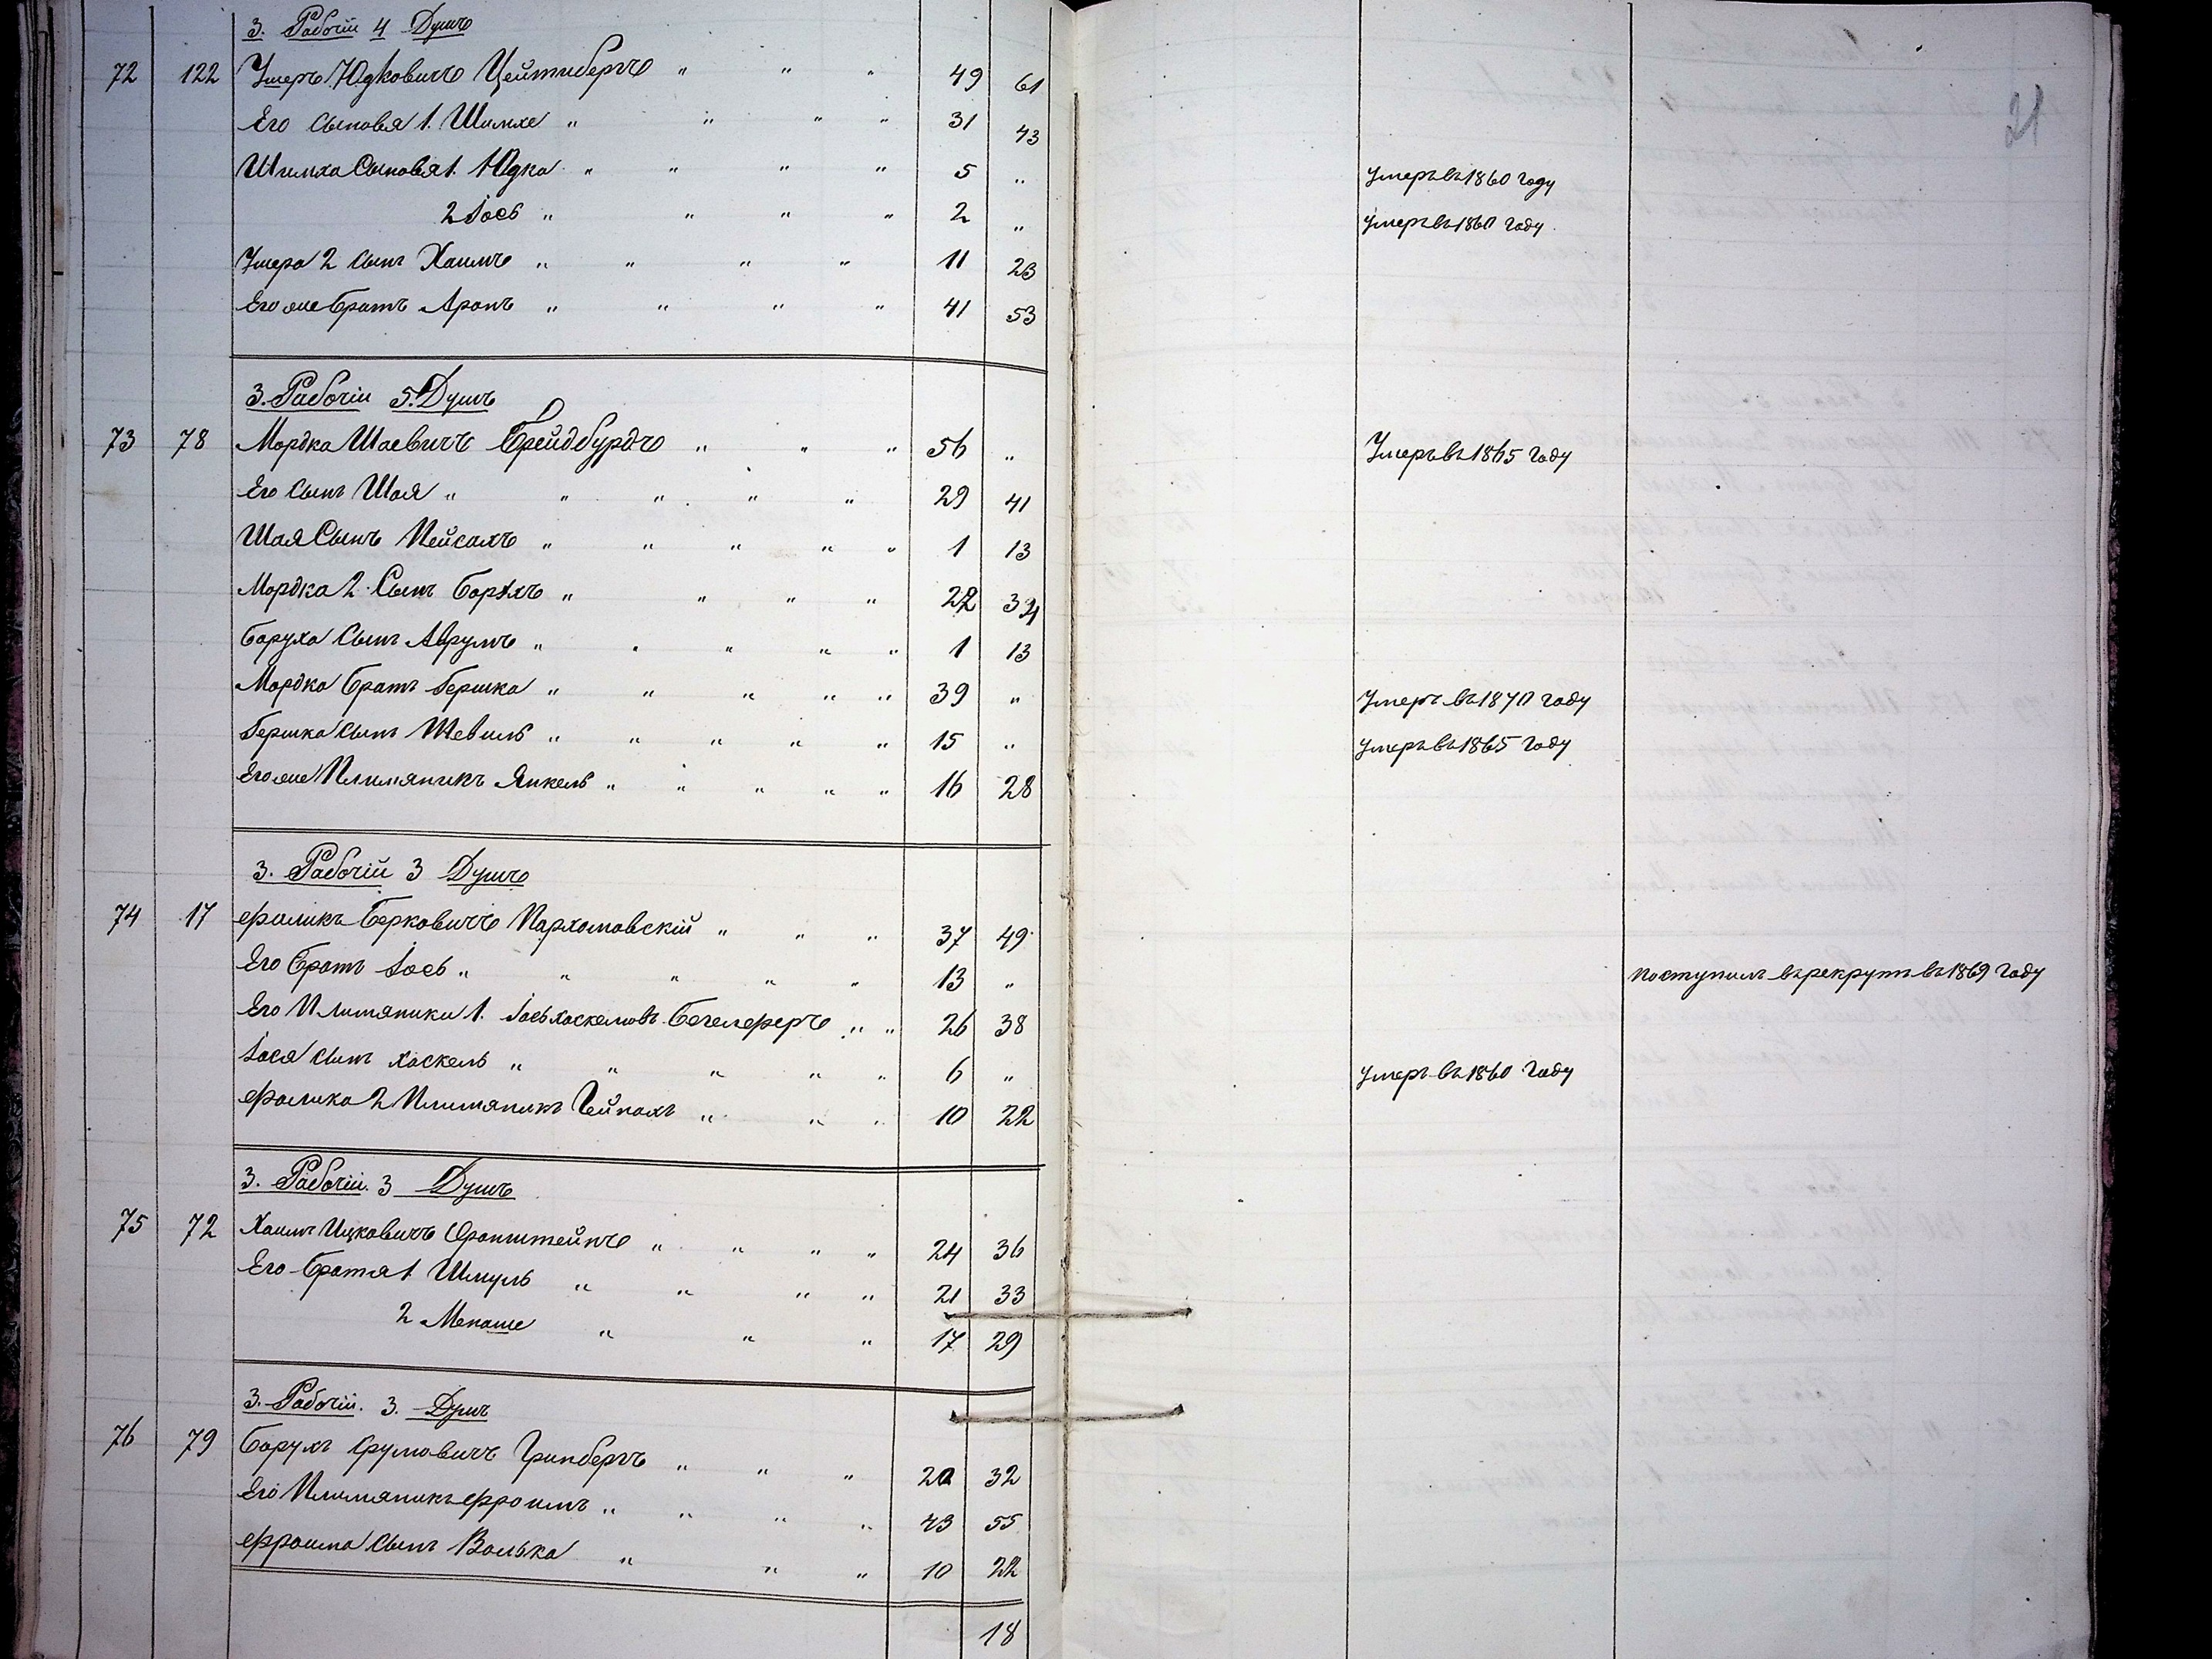 21
3. Рабочiй 4 Душъ
72 122 Умеръ Юдковичъ Цейтибергъ " " " 49 61
Его Сыновья 1. Шимхе " " " " 31 43
Шимха Сыновья 1. Юдка " " " " 5 " Умеръ въ 1860 году
2 Iось " " " " 2 " Умеръ въ 1860 году.
Умера 2 Сынъ Хаимъ " " " " 11 23
Его же братъ Аронъ " " " " 41 53
3. Рабочiй 5. Душъ
73 78 Мордка Шаевичъ Брейдбурдъ " " " 56 " Умеръ въ 1865 году
Его Сынъ Шая " " " " " 29 41
Шая Сынъ Пейсахъ " " " " " 1 13
Мордка 2. Сынъ Борухъ " " " " 22 34
Боруха Сынъ Аврумъ " " " " " 1 13
Мордко братъ Гершка " " " " " 39 " Умеръ въ 1870 году
Гершка Сынъ Шевиль " " " " " 15 " Умеръ въ 1865 году
Его же Плимяникъ Янкель " " " " " 16 28
3. Рабочiй 3 Душъ
74 17 Фроликъ Берковичъ Пархомовскiй " " " 37 49
Его братъ Iось " " " " " 13 " Поступилъ въ рекруты въ 1869 году
Его Плимяники 1. Iось Хаскелювъ Бегелферъ " " 26 38
Iося Сынъ Хаскель " " " " " 6 " Умеръ въ 1860 году
Фролика 2 Плимяникъ Гейнахъ " " " 10 22
3. Рабочiй. 3 Душъ
75 72 Хаимъ Ицковичъ Оронштейнъ " " " " 24 36
Его братья 1 Шмуль " " " " 21 33
2 Менаше " " " 17 29
3. Рабочiй. 3. Душъ
76 79 Борухъ Срумовичъ Гринбергъ " " " 20 32
Его Плимяникъ Ефроимъ " " " " 43 55
Ефроима Сынъ Волька " " " 10 22
18